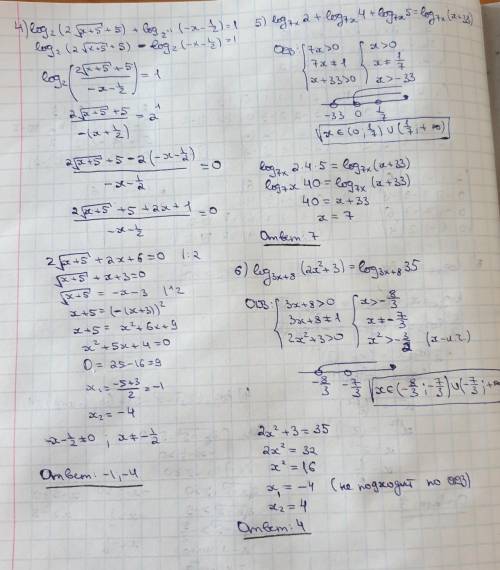 4) log₂(2√(x+5) + 5) + log₂₋₁(-x-1/2) = 1
log₂(2√(x+5) + 5) - log₂(-x-1/2) = 1
log₂((2√(x+5) + 5)/(-x-1/2)) = 1
(2√(x+5) + 5)/(-(x+1/2)) = 2¹
(2√(x+5) + 5 - 2(-x-1/2))/(-x-1/2) = 0
(2√(x+5) + 5 + 2x + 1)/(-x-1/2) = 0
2√(x+5) + 2x + 6 = 0 |:2
√(x+5) + x + 3 = 0
√(x+5) = -x-3 |^2
x+5 = (-(x+3))²
x+5 = x²+6x+9
x²+5x+4=0
D = 25-16=9
x₁ = (-5+3)/2 = -1
x₂ = -4
-x-1/2 ≠ 0 ; x ≠ -1/2
Ответ: -1, -4
5) log₇ₓ2 + log₇ₓ4 + log₇ₓ5 = log₇ₓ(x+33)
ОДЗ: { 7x>0 { x>0
7x≠1 x≠1/7
x+33>0 x>-33
-33 0 1/7
x∈(0; 1/7)∪(1/7; +∞)
log₇ₓ2·4·5 = log₇ₓ(x+33)
log₇ₓ40 = log₇ₓ(x+33)
40 = x+33
x = 7
Ответ: 7
6) log₃ₓ₊₈(2x²+3) = log₃ₓ₊₈35
ОДЗ: { 3x+8>0 { x>-8/3
3x+8≠1 x≠-7/3
2x²+3>0 x²>-3/2 (x-и.г.)
-8/3 -7/3
x∈(-8/3; -7/3)∪(-7/3; +∞
2x²+3=35
2x²=32
x²=16
x₁=-4 (не подходит по ОДЗ)
x₂=4
Ответ: 4